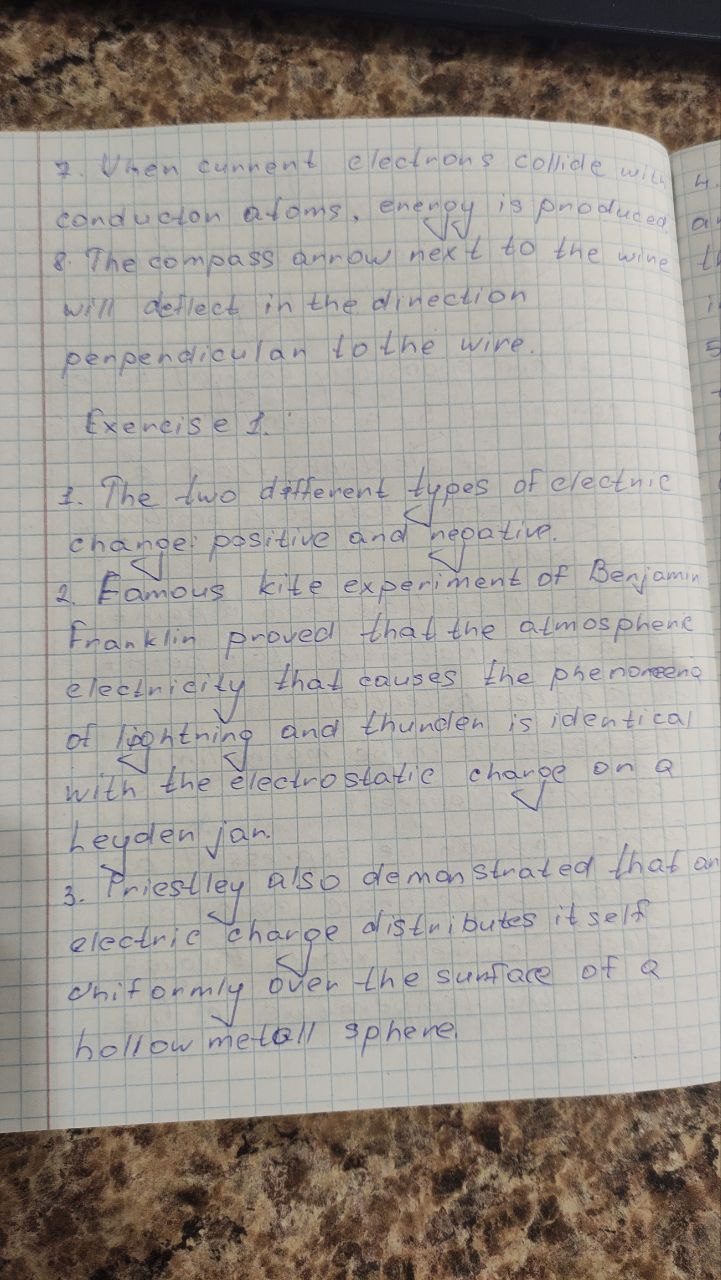 7. When current electrons collide with
conductor atoms, energy is produced.
8. The compass arrow next to the wire
will deflect in the direction
perpendicular to the wire.
Exercise 1.
1. The two different types of electric
charge: positive and negative.
2. Famous kite experiment of Benjamin
Franklin proved that the atmosphere
electricity that causes the phenomena
of lightning and thunder is identical
with the electrostatic charge on a
Leyden jar.
3. Priestley also demonstrated that an
electric charge distributes itself
uniformly over the surface of a
hollow metall sphere.
4.
5